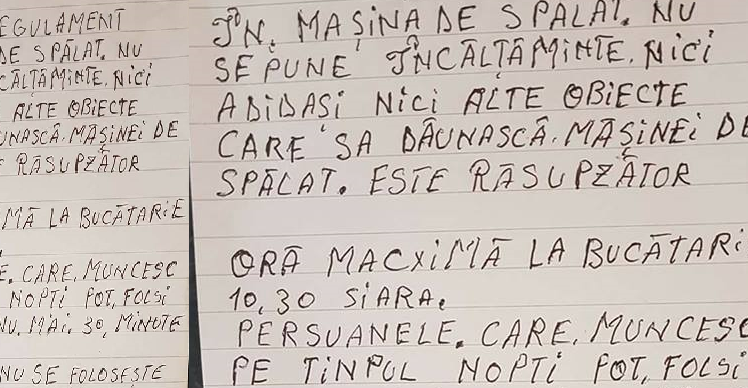 EGULAMENT
DE SPĂLAT. NU
CĂLȚĂMINTE. NICI
ALTE OBIECTE
UNASCĂ. MAȘINEI DE
RĂSUPZĂTOR
MĂ LA BUCĂTARIE
E. CARE. MUNCESC
NOPTI POT, FOLSI
NU. MAI. 30, MINUTE
NU SE FOLOSEȘTE
ÎN. MAȘINA DE SPALAT. NU
SE PUNE ÎNCĂLȚĂMINTE. NICI
ADIDASI NICI ALTE OBIECTE
CARE SA DĂUNASCĂ. MAȘINEI DE
SPĂLAT. ESTE RĂSUPZĂTOR
ORĂ MACXIMĂ LA BUCĂTARI
10,30 SIARA.
PERSUANELE. CARE. MUNCESC
PE TINPUL NOPTI POT, FOLSI